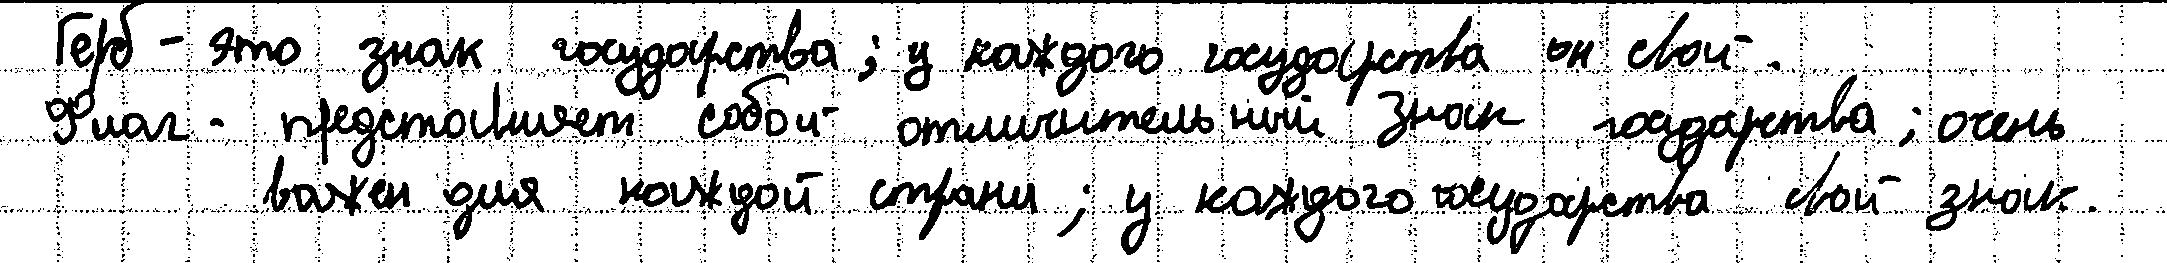 Герб - это знак государства; у каждого государства он свой.
Флаг - представляет собой отличительный знак государства; очень
важен для каждой страны; у каждого государства свой знак.